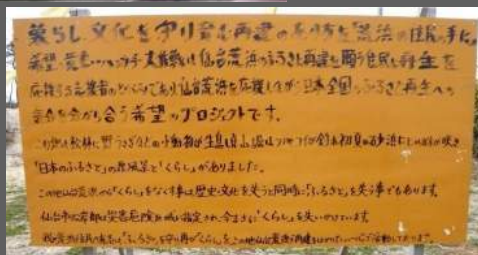 暮らし、文化を守り育む再建のあり方を「荒浜の住民の手に」
希望の黄色いハンカチ大作戦は仙台荒浜のふるさと再建を願う住民と再生を
応援する支援者の
仙台荒浜を応援しながら日本全国のふるさと再生への
夢を分かち合う希望のプロジェクトです。
この地は松林に野うさぎなどの小動物が生息し貞山堀は
が釣れ初夏の砂浜に
が咲き
「日本のふるさと」の原風景と「くらし」がありました。
この地仙台荒浜から「くらし」をなくす事は歴史文化を失うと同時に「ふるさと」を失う事でもあります。
仙台市の
災害危険区域に指定され今まさに「くらし」を失いかけています
「ふるさと」を守り再び「くらし」をこの地仙台荒浜に再建
活動しております。